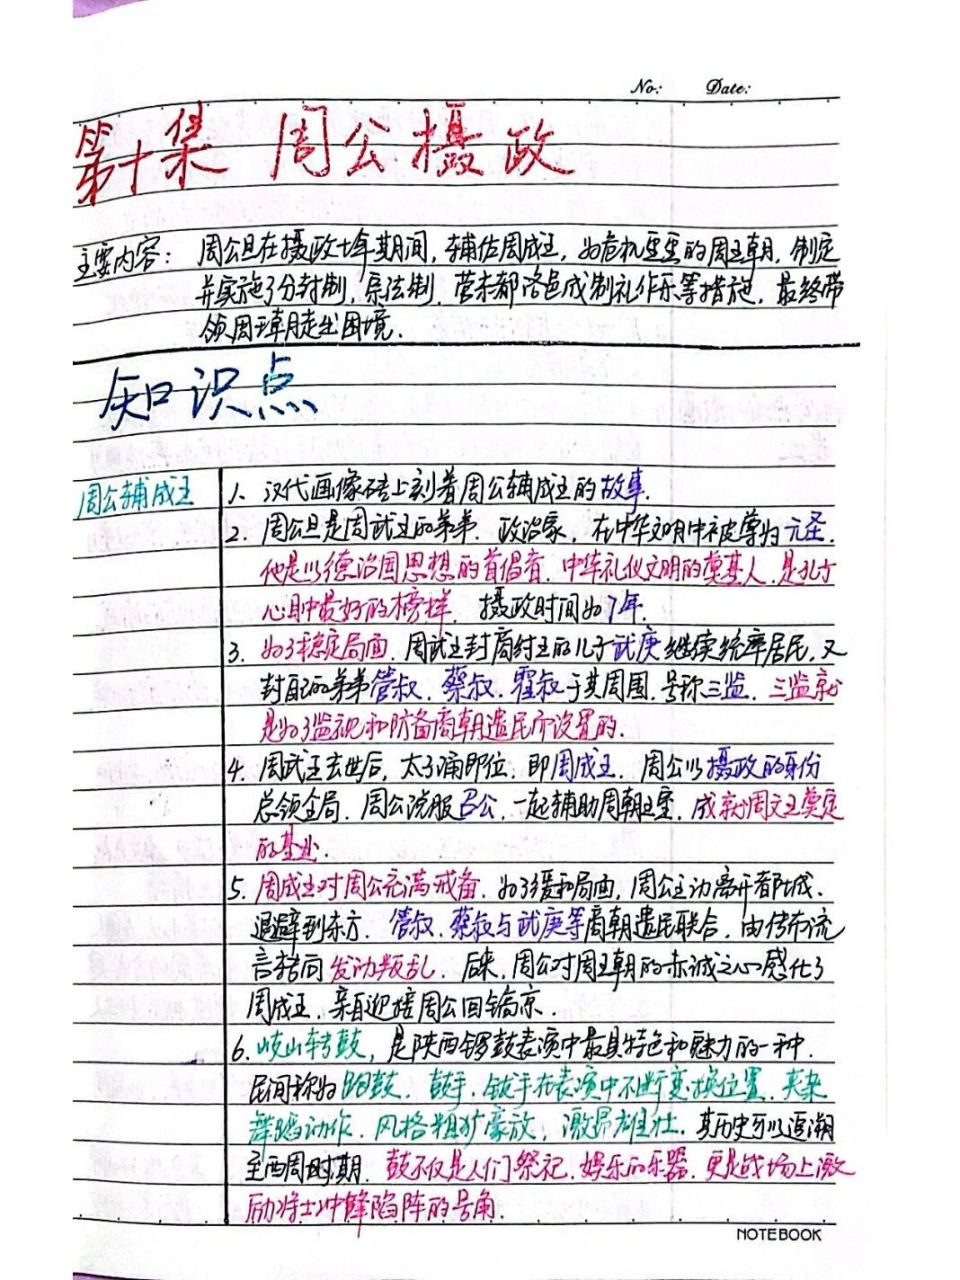 No: Date:
第十集 周公摄政
主要内容: 周公旦在摄政七年期间, 辅佐周成王, 为危机重重的周王朝, 制定
并实施了分封制, 宗法制, 营东都洛邑成制礼作乐等措施, 最终带
领周王朝走出困境.
知识点
周公辅成王
1. 汉代画像砖上刻着周公辅成王的故事.
2. 周公旦是周武王的弟弟, 政治家, 在中华文明中被尊为元圣,
他是以德治国思想的首倡者, 中华礼仪文明的奠基人, 是孔子
心目中最好的榜样, 摄政时间为7年.
3. 为了稳定局面, 周武王封商纣王的儿子武庚继续统率居民, 又
封自己的弟弟管叔, 蔡叔, 霍叔于其周围, 号称三监, 三监就
是为了监视和防备商朝遗民所设置的.
4. 周武王去世后, 太子诵即位, 即周成王, 周公以摄政的身份
总领全局, 周公说服召公, 一起辅助周朝王室, 成就周文王奠定
的基业.
5. 周成王对周公充满戒备, 为了缓和局面, 周公主动离开都城,
退避到东方, 管叔, 蔡叔与武庚等商朝遗民联合, 由传布流
言转向发动叛乱, 后来, 周公对周王朝的赤诚之心感化了
周成王, 亲自迎接周公回镐京.
6. 岐山转鼓, 是陕西锣鼓表演中最具特色和魅力的一种,
民间称为跑鼓, 鼓手, 钹手在表演中不断变换位置, 夹杂
舞蹈动作, 风格粗犷豪放, 激昂雄壮, 其历史可以追溯
至西周时期, 鼓不仅是人们祭祀, 娱乐的乐器, 更是战场上激
励将士冲锋陷阵的号角.
NOTEBOOK